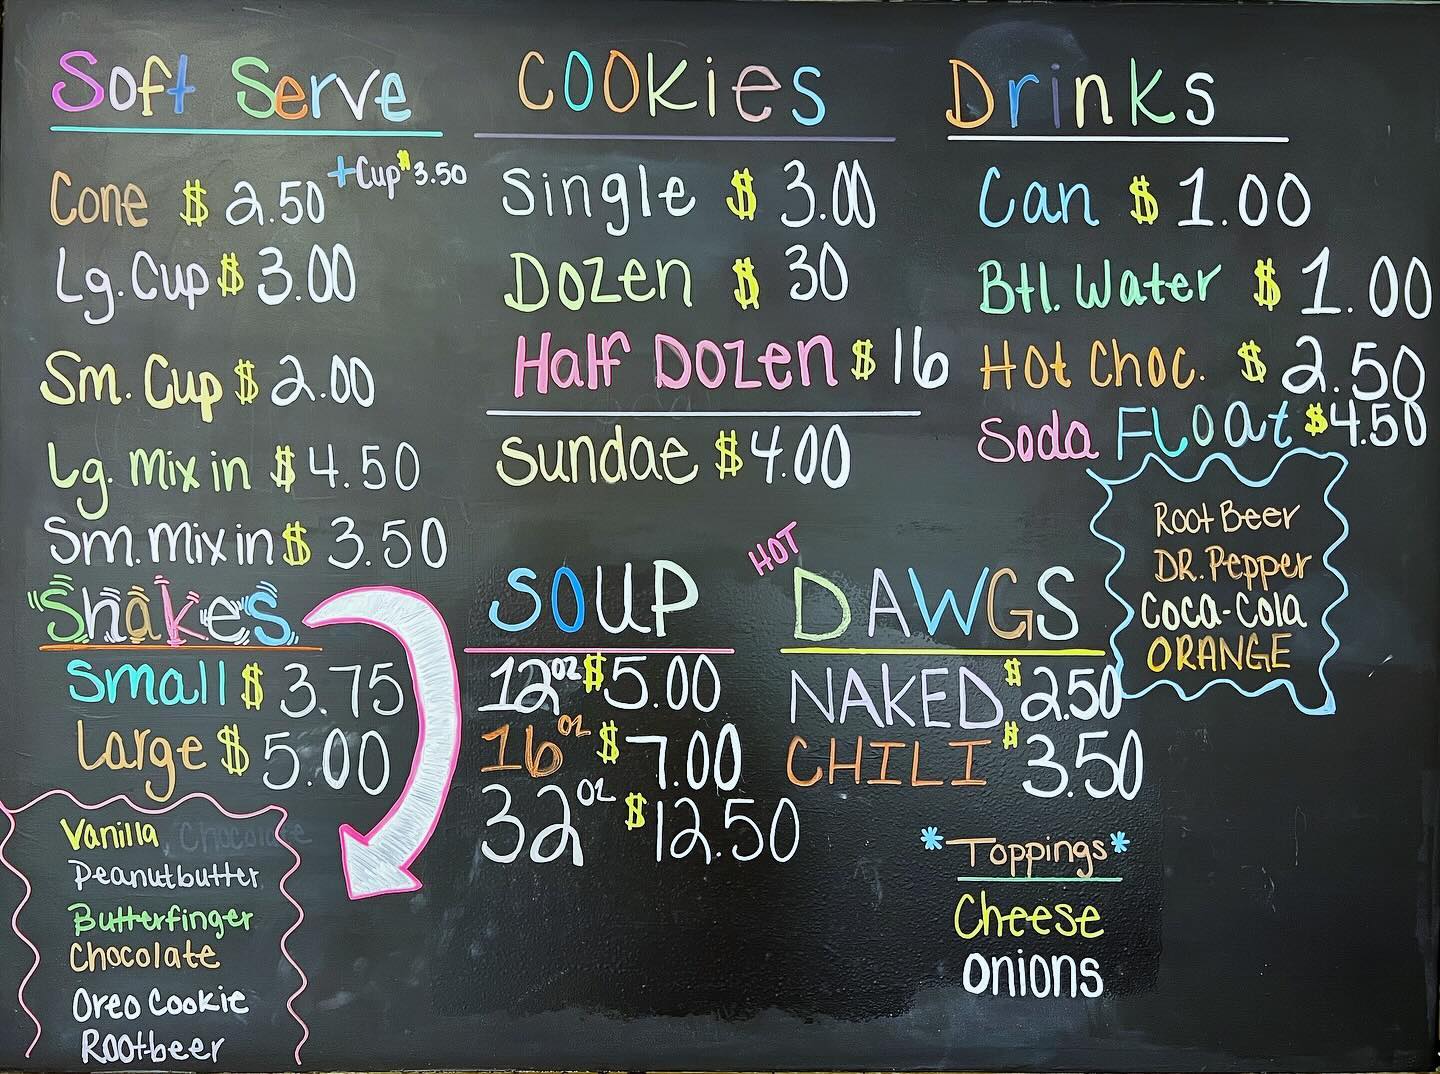 Soft Serve
Cone $ 2.50 + Cup $ 3.50
Lg. Cup $ 3.00
Sm. Cup $ 2.00
Lg. Mix in $ 4.50
Sm. Mix in $ 3.50
Shakes
Small $ 3.75
Large $ 5.00
Vanilla, Chocolate
Peanutbutter
Butterfinger
Chocolate
Oreo Cookie
Rootbeer
Cookies
Single $ 3.00
Dozen $ 30
Half Dozen $ 16
Sundae $ 4.00
SOUP
12oz $5.00
16oz $ 7.00
32oz $ 12.50
HOT DAWGS
NAKED $2.50
CHILI $3.50
*Toppings*
Cheese
Onions
Drinks
Can $ 1.00
Btl. Water $ 1.00
Hot Choc. $ 2.50
Soda FLOat $4.50
Root Beer
DR. Pepper
Coca-Cola
ORANGE